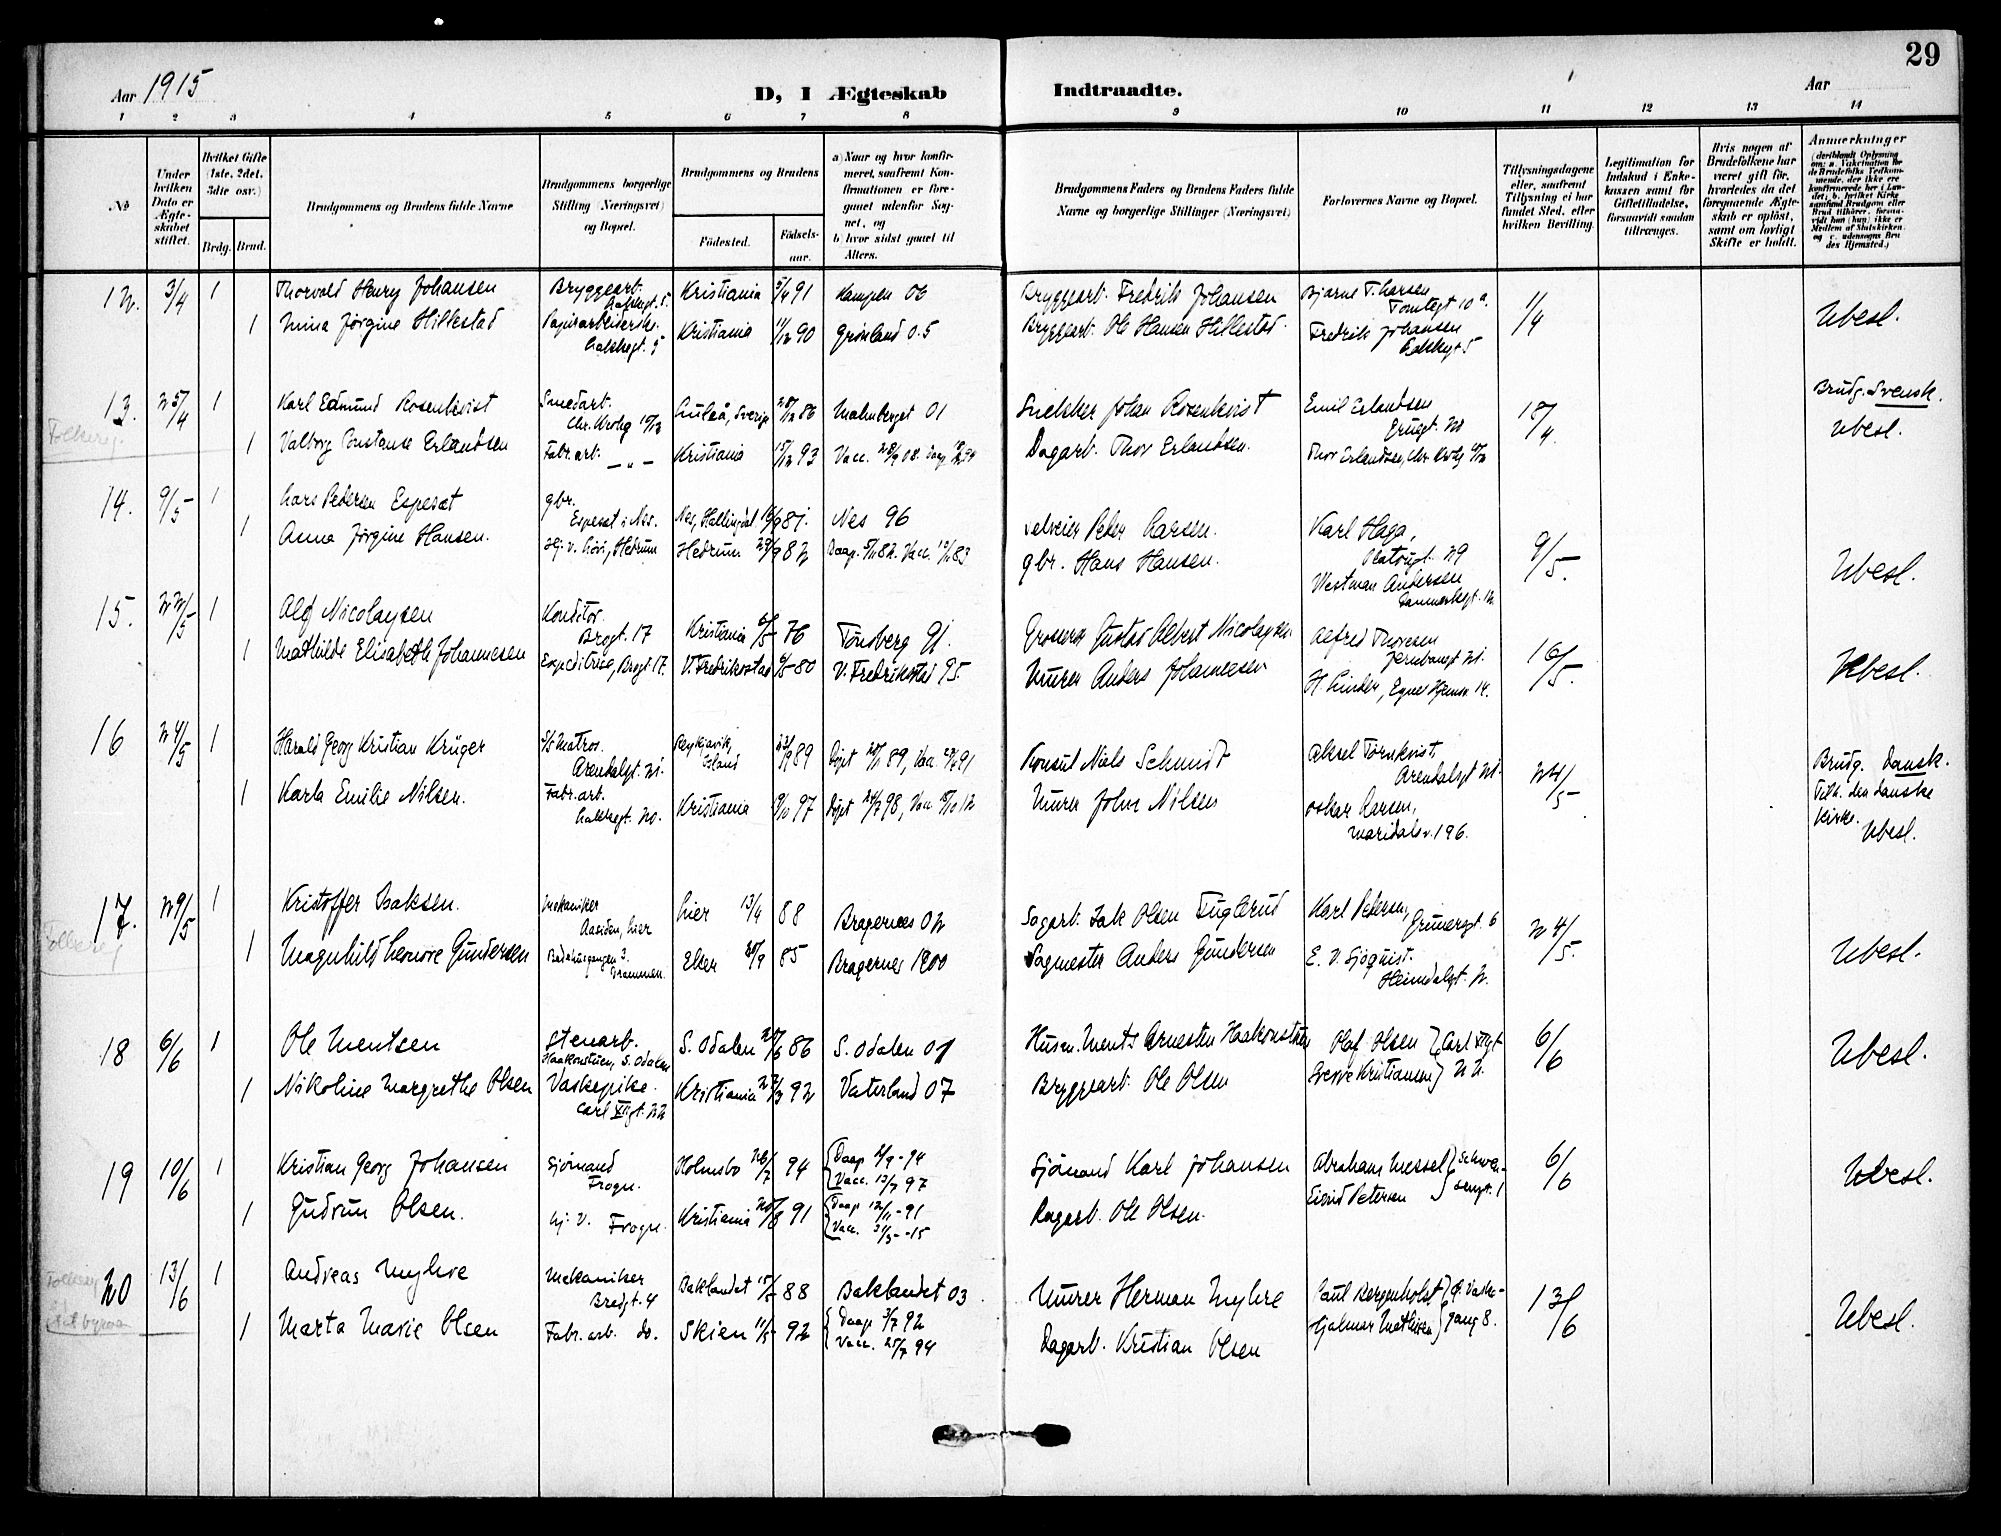 29
Aar 1915
D, I Ægteskab Indtraadte.
Aar
1 2 3 4 5 6 7 8 9 10 11 12 13 14
№
Under hvilken Dato er Ægteskabet stiftet.
Hvilket Gifte (1ste, 2det, 3die osv.)
Brdg. Brud.
Brudgommens og Brudens fulde Navne
Brudgommens borgerlige Stilling (Næringsvei) og Bopæl.
Brudgommens og Brudens
Födested. Födselsaar.
a) Naar og hvor konfirmeret, saafremt Konfirmationen er foregaaet udenfor Sognet, og
b) hvor sidst gaaet til Alters.
Brudgommens Faders og Brudens Faders fulde Navne og borgerlige Stillinger (Næringsvei)
Forlovernes Navne og Bopæl.
Tillysningsdagene eller, saafremt Tillysning ei har fundet Sted, efter hvilken Bevilling.
Legitimation for Indskud i Enkekassen samt for Giftetilladelse, forsaavidt saadan tiltrænges.
Hvis nogen af Brudefolkene har været gift för, hvorledes da det foregaaende Ægteskab er oplöst, samt om lovligt Skifte er holdt.
Anmerkninger
12. 3/4 1 Thorvald Henry Johansen Bryggearb. Kristiania 5/4 91 Kampen 06 Bryggearb. Fredrik Johansen Bjarne T. Larsen Tomtegt 10a. 1/4 Ubesl.
1 Nina Jørgine Hillestad Papirarbeiderske. Kristiania 11/12 90 Grønland 05 Bryggearb. Ole Hansen Hillestad. Fredrik Johansen
13. 25/4 1 Karl Edmund Rosenkvist Smedarb. Chr. Krohg Luleå, Sverige 28/12 86 Malmberget 01 Snekker Johan Rosenkvist Emil Erlandsen 18/4 Brudg. Svensk.
1 Valborg Constanse Erlandsen Fabr. arb. — " — Kristiania 15/12 93 Dagarb. Thor Erlandsen. Thor Erlandsen, Chr Krohg Ubesl.
14. 9/5 1 Lars Pedersen Espeset gbr. Espeset i Nes. Nes, Hallingdal 81. Nes 96 Selveier Peder Larsen. Karl Haga, 9/5. Ubesl.
1 Anna Jørgine Hansen. Hj. v. Hedrum Hedrum 29/9 82 gbr. Hans Hansen. Vestman Andersen Danmarksgt. 12
15. 22/5 1 Alf Nicolaysen Konditor. Brogt. 17 Kristiania 76 Tønsberg 91. Grosserer Gustav Albert Nicolaysen Alfred Thoresen Jernbanegt 21. 16/5. Ubesl.
1 Mathilde Elisabeth Johannesen Expeditrise, Brogt. 17. V. Fredrikstad 80 V. Fredrikstad 95. Murer Anders Johannesen H. Linder, Egne Hjemsv 14.
16 24/5 1 Harald Georg Kristian Krüger Matros. Arendalsgt. 21. Reykjavik, Island 89 Konsul Niels Schmidt Aksel Törnkvist, Arendalsgt 21. 24/5 Brudg. Dansk. Tilh. den danske Kirke. Ubesl.
1 Karla Emilie Nilsen. Fabr. arb. Kristiania 9/10 97 Døpt 24/7 98, Murer John Nilsen Oskar Larsen, Maridalsv. 196.
17. 29/5 1 Kristoffer Isaksen. Mekaniker Aasiden, Lier Lier 13/4 88 Bragernes 02 Sagarb. Isak Olsen Fuglerud Karl Petersen, Grünersgt. 6 24/5. Ubesl.
1 Magnhild Leonore Gundersen Drammen. Eker 85 Bragernes 1900 Sagmester Anders Gundersen E. V. Sjöquist. Heimdalsgt. 2.
18 6/6 1 Ole Mentsen Stenarb. Haakonstuen, S. Odalen S. Odalen 86 S. Odalen 01 Husm. Ments Arnesten Haakonstuen Olaf Olsen } Carl XIIgt 6/6 Ubesl.
1 Nikoline Margrethe Olsen Vaskepike. Carl XIIgt. 22 Kristiania 92 Vaterland 07 Bryggearb. Ole Olsen Sverre Kristiansen } 22.
19 10/6 1 Kristian Georg Johansen Sjömand Frogn. Holmsbo 26/7 94 { Daap 2/9 - 94 Vacc. 13/7 97 Sjömand Karl Johansen Abraham Messel 6/6 Ubesl.
1 Gudrun Olsen. hj. v. Frogn. Kristiania 91 { Daap 12/11 - 91 Vacc. 31/5 - 15 Dagarb. Ole Olsen. Eivind Petersen
20 13/6 1 Andreas Myhre Mekaniker Bredgt. 4 Baklandet 15/5 88 Baklandet 03. Murer Herman Myhre Paul Bergenholst 13/6 Ubesl.
1 Marta Marie Olsen Fabr. arb. do. Skien 11/5 92 { Daap 3/7 92 Vacc. 25/7 94 Dagarb. Kristian Olsen Hjalmar Mathisen } gang 8.